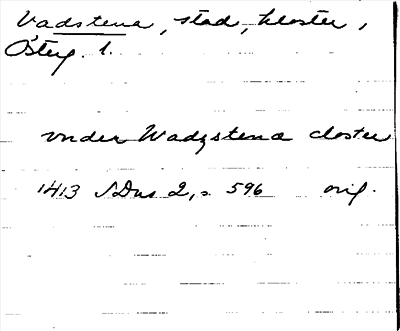 Vadstena, stad, kloster,
Östg. l.
vnder Wadzstena closter
1413 SDns 2, s 596 orig.